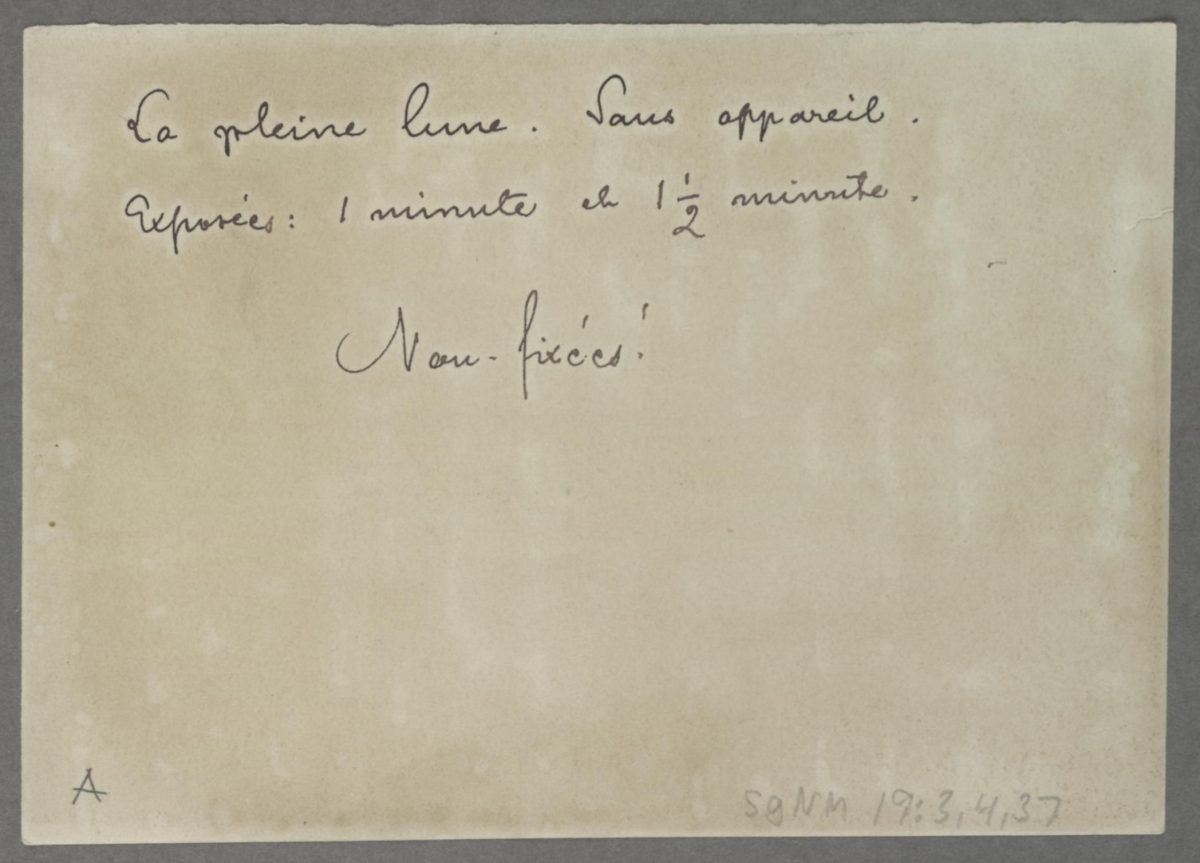 La pleine lune. Sans appareil.
Exposées: 1 minute et 1 1/2 minute.
Non-fixées!
A
SgNM 19:3,4,37